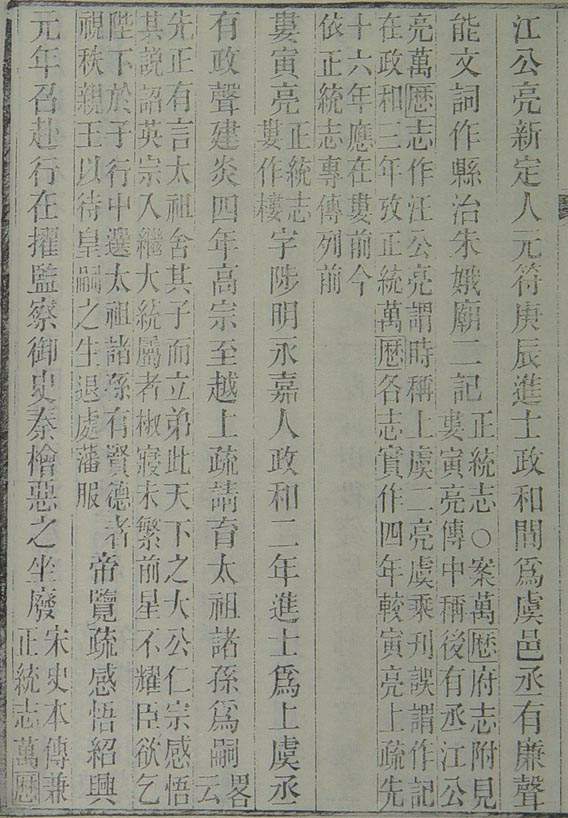 江公亮新定人元符庚辰進士政和間爲虞邑丞有廉聲
能文詞作縣治朱娥廟二記
正統志○案萬曆府志附見
婁寅亮傳中稱後有丞江公
亮萬曆志作汪公亮謂時稱上虞二亮虞乘刊誤謂作記
在政和三年攷正統萬曆各志實作四年較寅亮上疏先
十六年應在婁前今
依正統志專傳列前
婁寅亮
正統志
婁作樓
字陟明永嘉人政和二年進士爲上虞丞
有政聲建炎四年高宗至越上疏請育太祖諸孫爲嗣
畧
云
先正有言太祖舍其子而立弟此天下之大公仁宗感悟
其說詔英宗入繼大統屬者椒寢未繁前星不耀臣欲乞
陛下於子行中選太祖諸孫有賢德者
視秩親王以待皇嗣之生退處藩服
帝覽疏感悟紹興
元年召赴行在擢監察御史秦檜惡之坐廢
宋史本傳兼
正統志萬曆